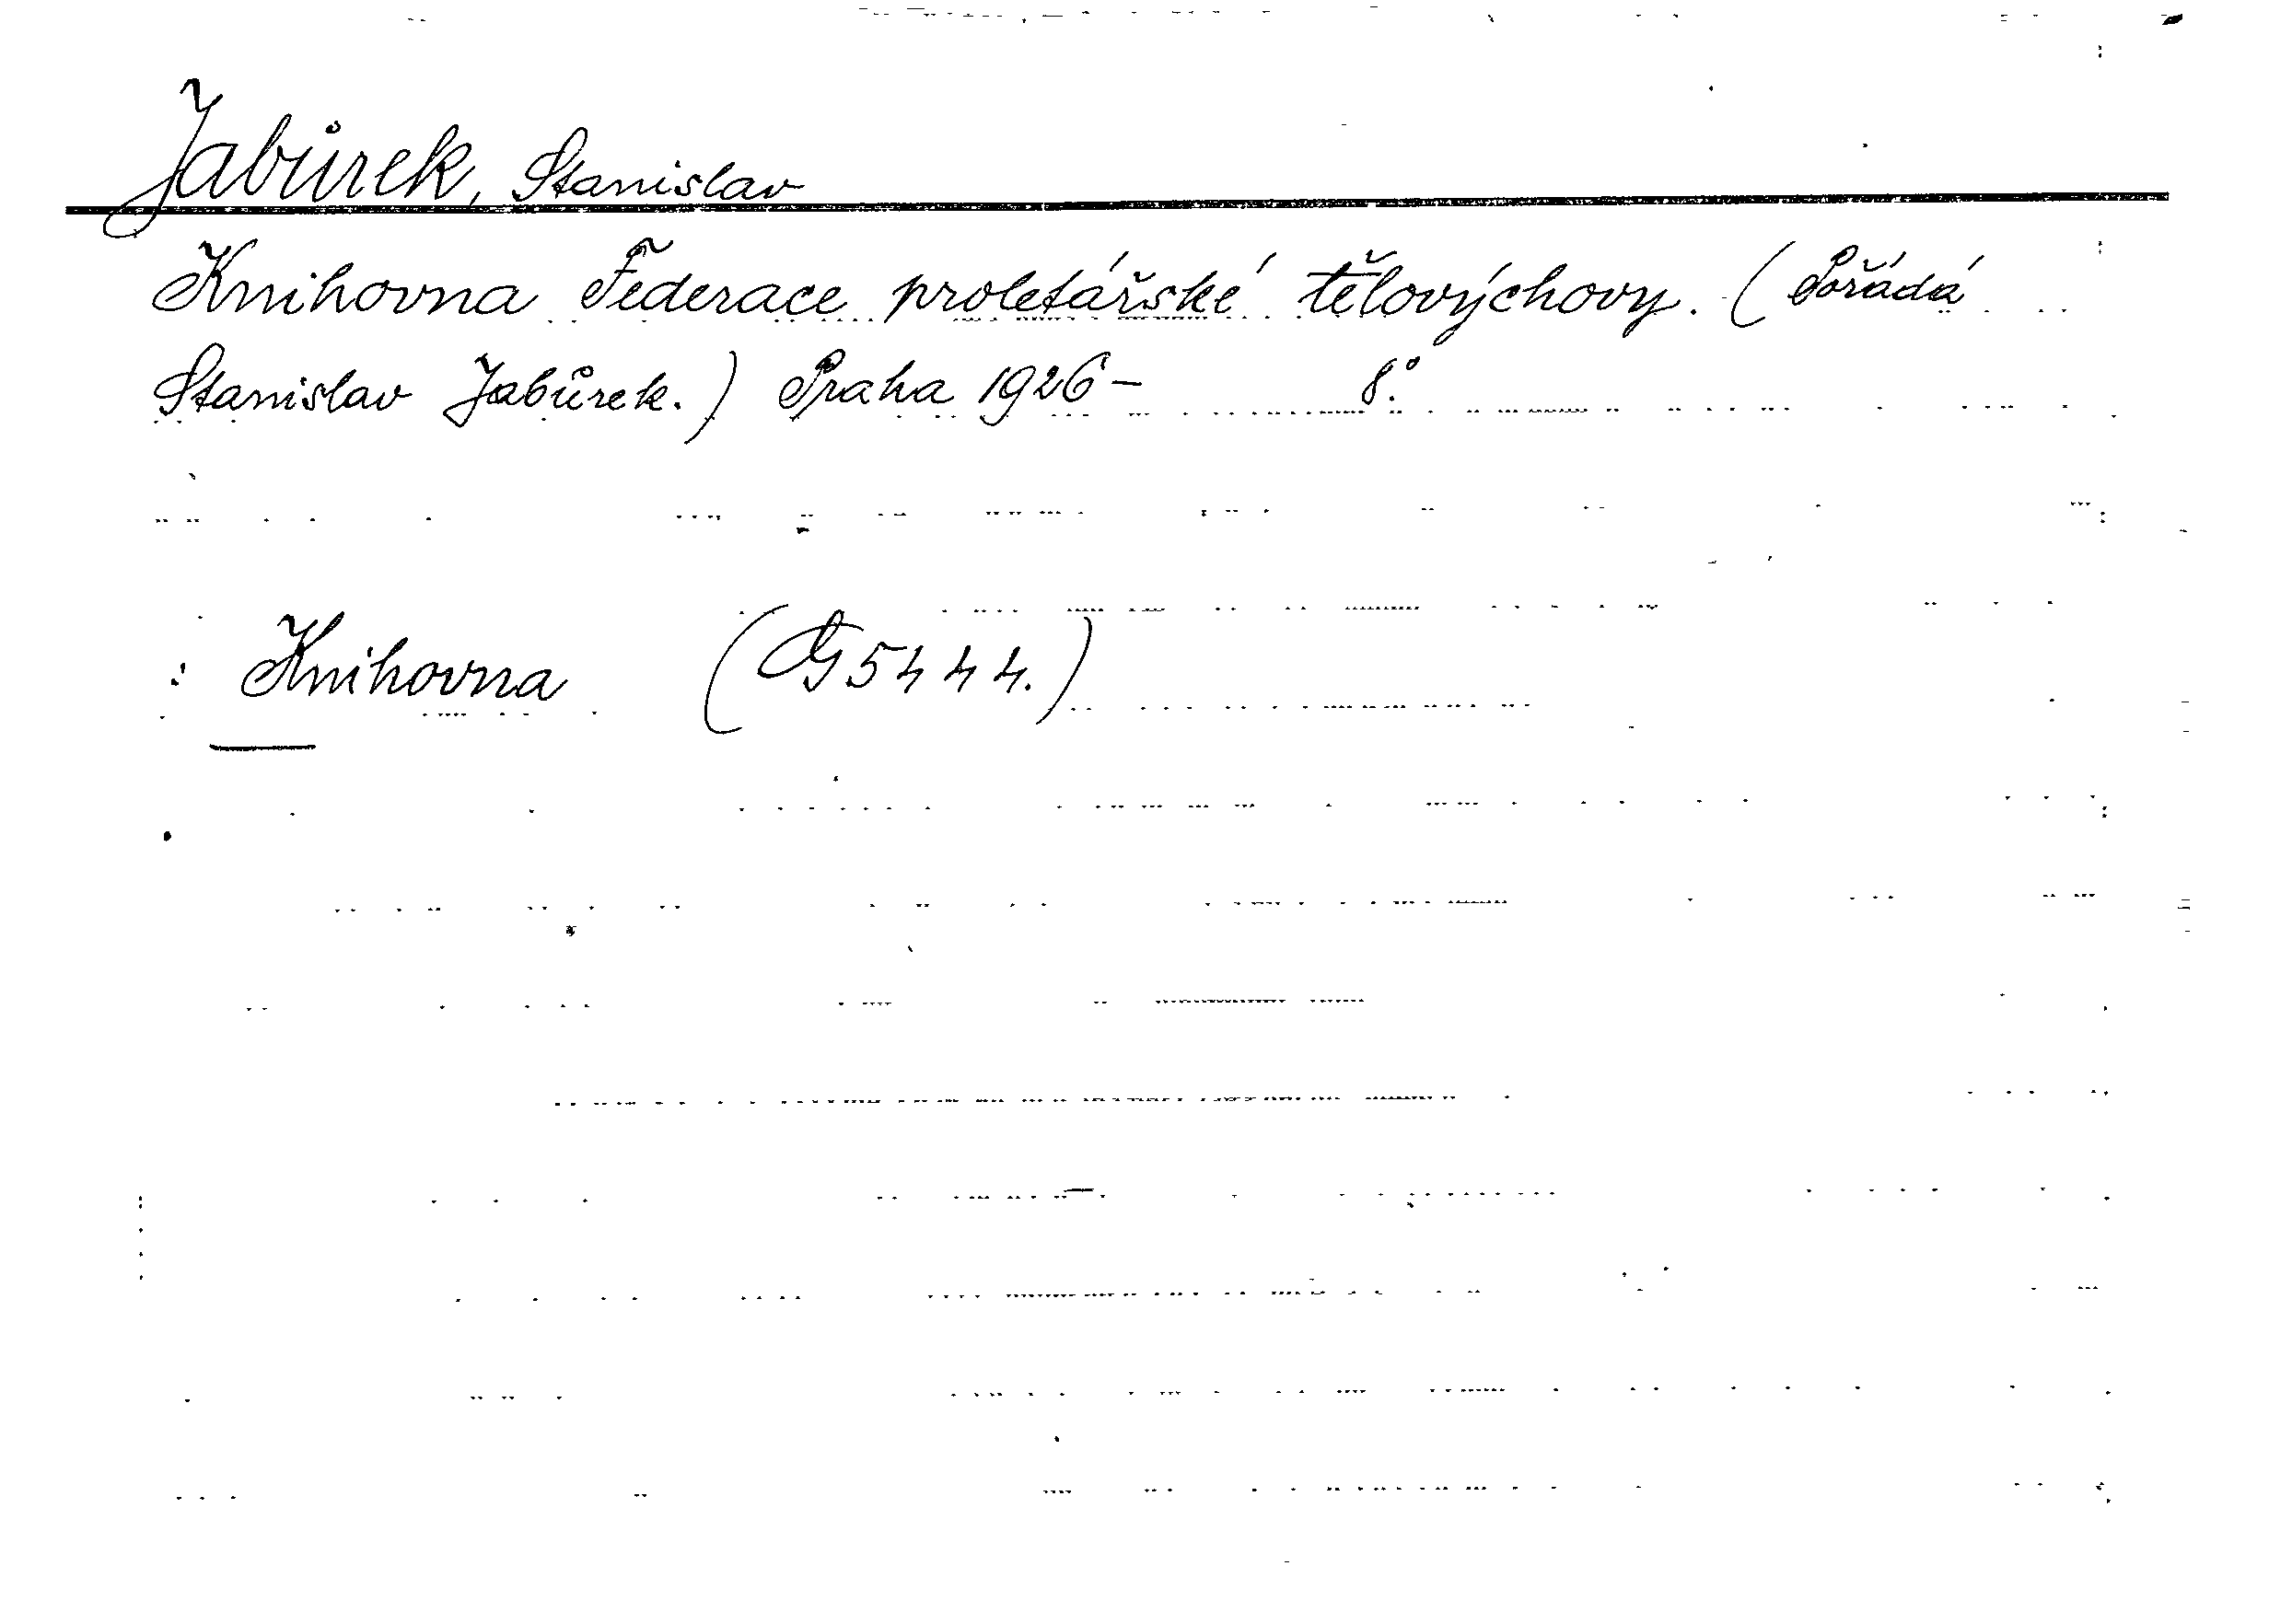 Jabůrek, Stanislav
Knihovna Federace proletářské tělovýchovy. (Pořádá
Stanislav Jabůrek.) Praha 1926 – 8°.
: Knihovna (G 5444.)